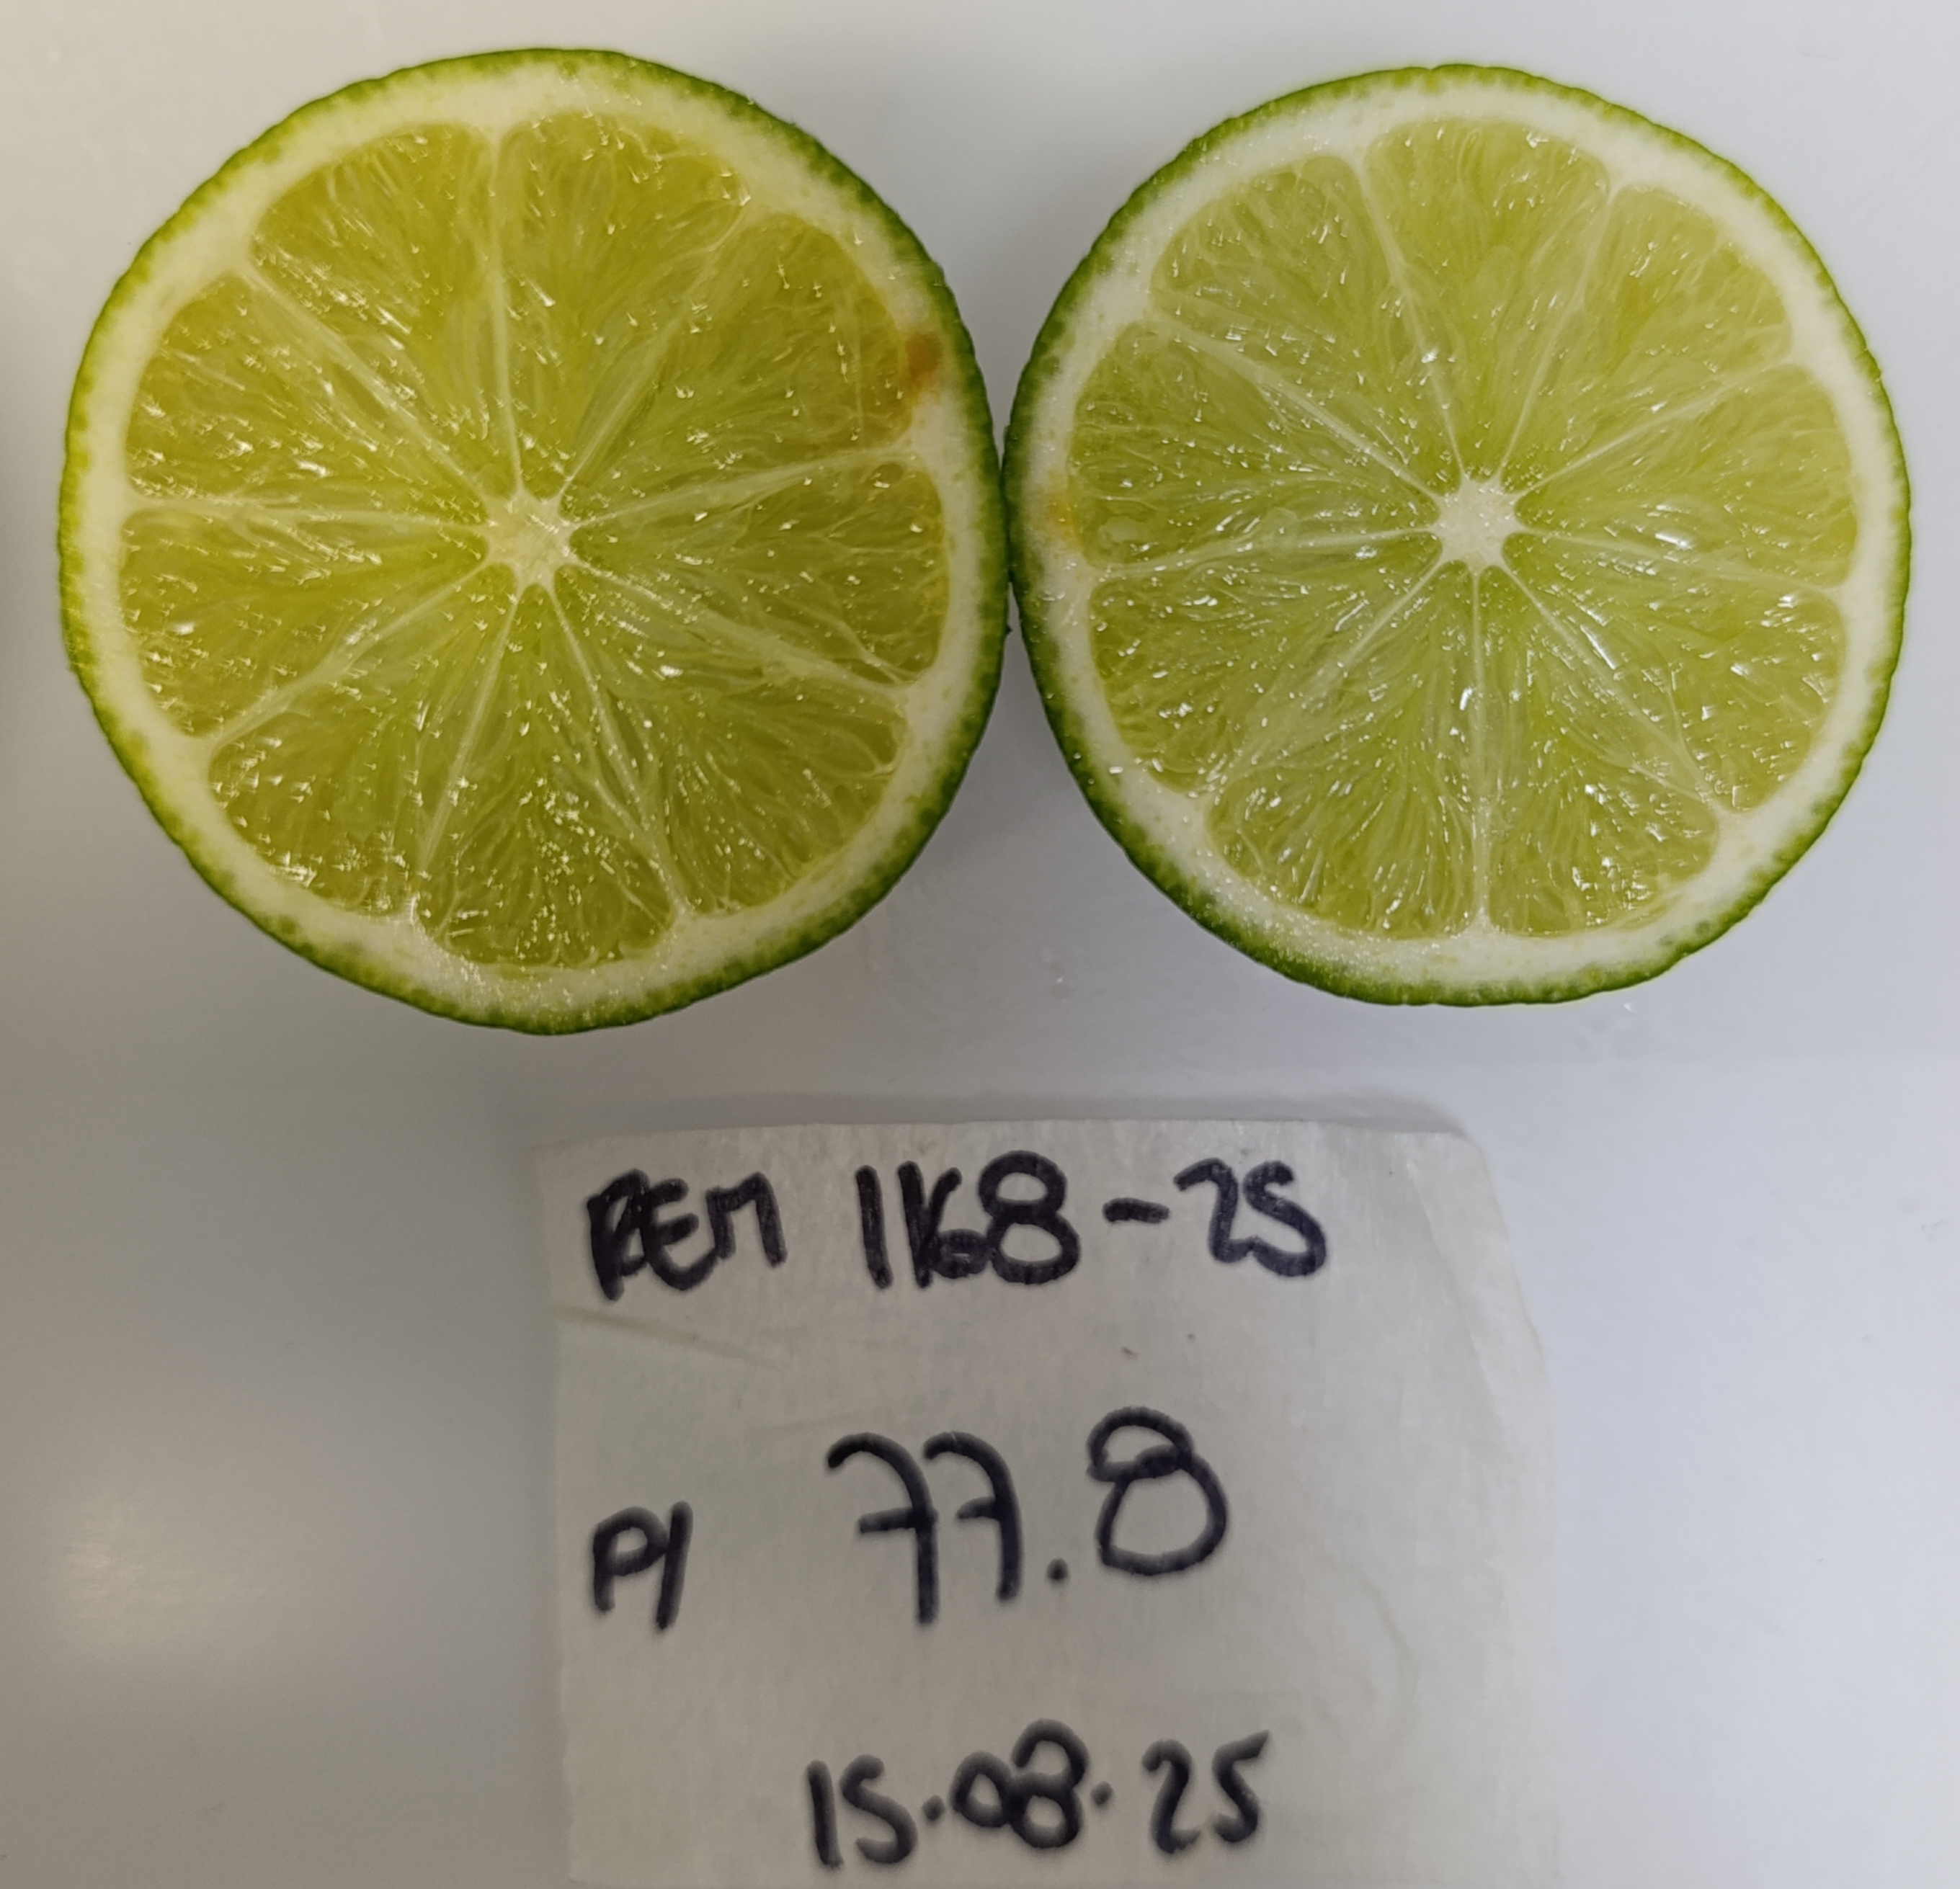 REM 1168-25
P/ 77.8
15.08.25